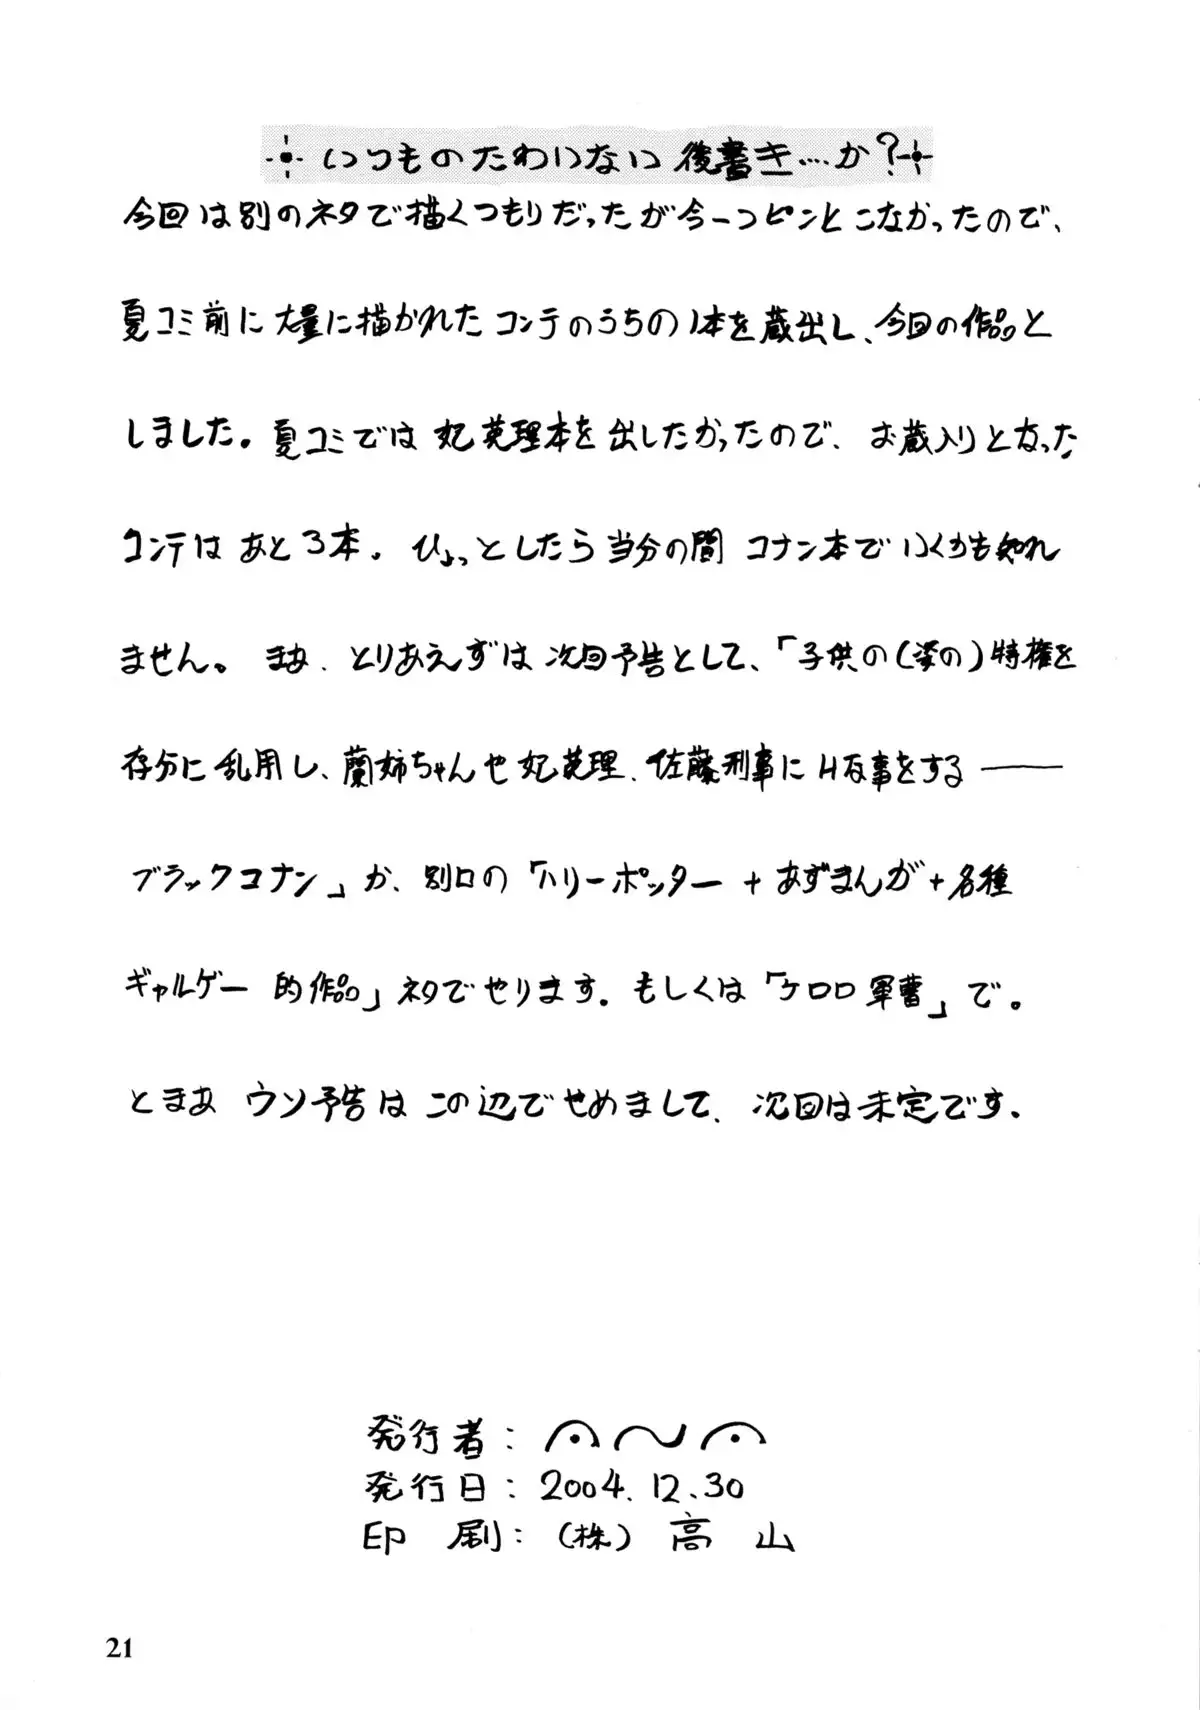 いつものたわいない後書き…か?
今回は別のネタで描くつもりだったが今一つピンとこなかったので、
夏コミ前に大量に描かれたコンテのうちの1本を蔵出し、今回の作品と
しました。夏コミでは妃英理本を出したかったので、お蔵入りとなった
コンテはあと3本。ひょっとしたら当分の間コナン本でいくかも知れ
ません。まあ、とりあえずは次回予告として、「子供の(姿の)特権を
存分に乱用し、蘭姉ちゃんや妃英理、佐藤刑事にHな事をする――
ブラックコナン」か、別口の「ハリーポッター+あずまんが+各種
ギャルゲー的作品」ネタでやります。もしくは「ケロロ軍曹」で。
とまあ ウソ予告はこの辺でせめまして、次回は未定です。
発行者:
発行日:2004.12.30
印刷:(株)高山
21